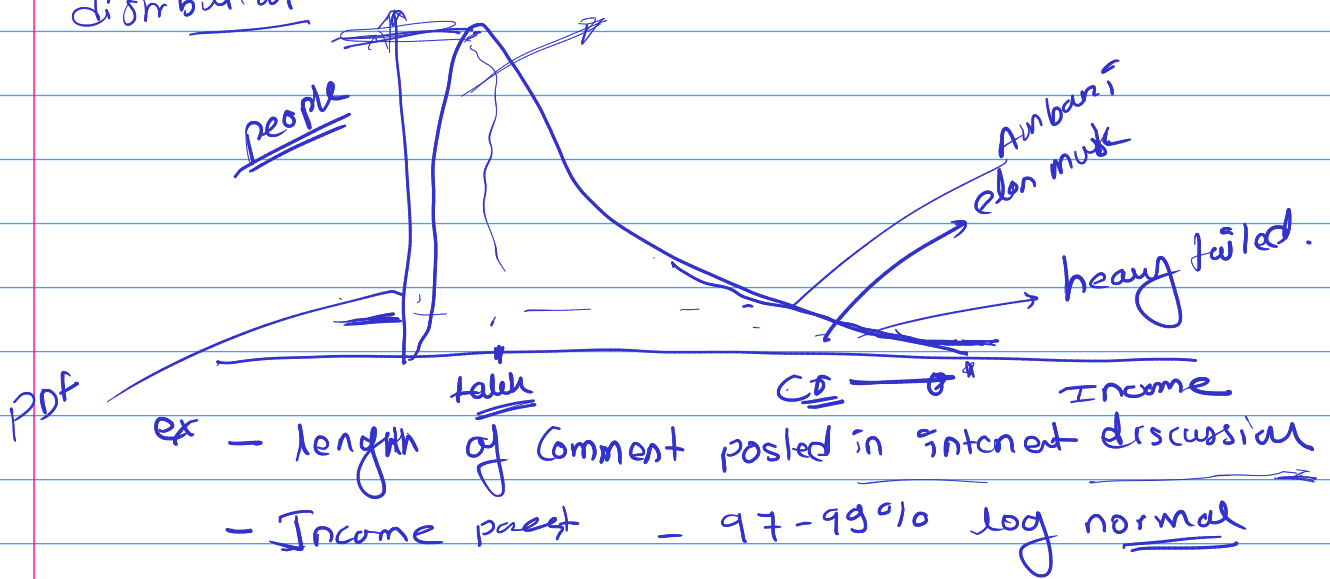 people
Ambani
elon musk
heavy tailed.
PDF
Income
ex – length of Comment posted in internet discussion
– Income – 97-99% log normal